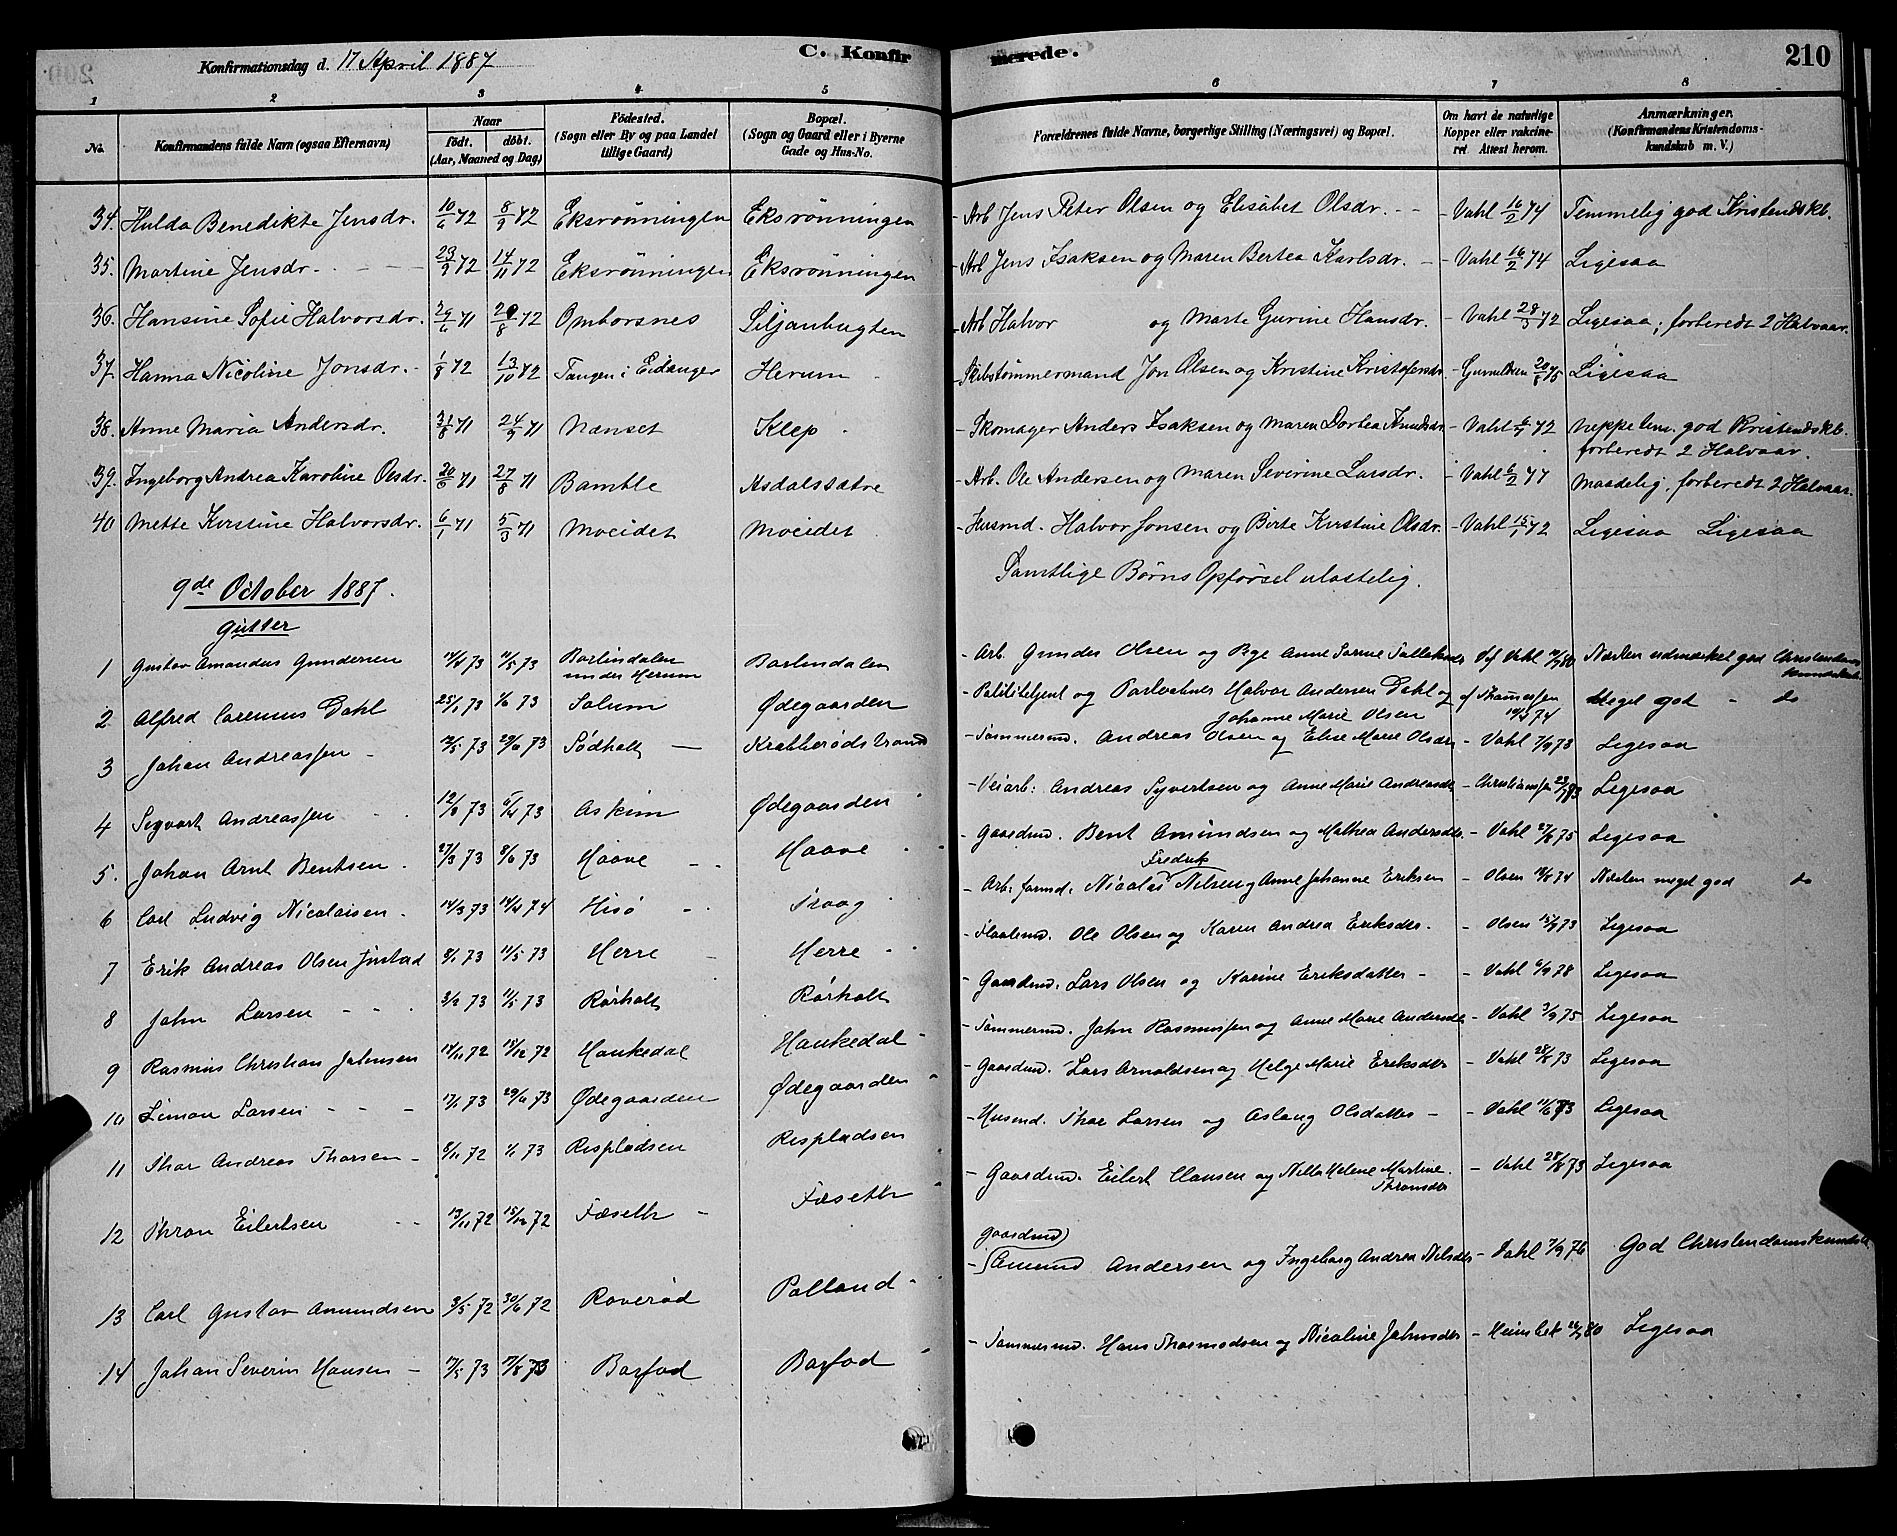 Konfirmationsdag d. 17 April 1887
C. Konfirmerede.
210
1 2 3 4 5 6 7 8
No.
Konfirmandens fulde Navn (ogsaa Efternavn)
Naar
født. døbt.
(Aar, Maaned og Dag)
Fødested.
(Sogn eller By og paa Landet tillige Gaard)
Bopæl.
(Sogn og Gaard eller i Byerne Gade og Hus-No.
Forældrenes fulde Navne, borgerlige Stilling (Næringsvei) og Bopæl.
Om havt de naturlige Kopper eller vakcineret Attest herom.
Anmærkninger.
(Konfirmandens Kristendomskundskab m. V.)
34. Hulda Benedikte Jensdr. 10/6 72 8/9 72 Eksrønningen Eksrønningen - Arb Jens Peter Olsen og Elisabet Olsdr. - Vahl 16/2 74 Temmelig god Kristendskb.
35. Martine Jensdr. 23/9 72 17/11 72 Eksrønningen Eksrønningen - Arb Jens Isaksen og Maren Bertea Karlsdr. - Vahl 16/2 74 Ligesaa
36. Hansine Sofie Halvorsdr. 29/6 71 Omborsnes Siljanbugten - Arb Halvor og Marte Gurine Hansdr. - Vahl 28/3 72 Ligesaa; forberedt 2 Halvaar.
37. Hanna Nicoline Jonsdr. 1/8 72 13/10 72 Tangen i Eidanger Herum - Skibstømmermand Jon Olsen og Kristine Kristofersdr. 20/8 75 Ligesaa
38. Anne Maria Andersdr. 31/8 71 24/9 71 Nænset Klep - Skomager Anders Isaksen og Maren Dortea Knudsdr - Vahl 6/7 72 Neppe tem. god Kristendskb. forberedt 2 Halvaar.
39. Ingeborg Andrea Karoline Olsdr. 20/6 71 27/8 71 Bamble Asdalssætre - Arb. Ole Andersen og Maren Severine Larsdr. - Vahl 6/2 77 Maadelig, forberedt 2 Halvaar.
40 Mette Kirstine Halvorsdr. 6/1 71 5/3 71 Mocidet Mocidet - Husmd. Halvor Jonsen og Birte Kirstine Olsdr. - Vahl 15/1 72 Ligesaa Ligesaa
Samtlige Børns Opførsel ulastelig.
9de October 1887.
Gutter
1 Gustav Amandus Gundersen 73 11/5 73 Barlindalen under Herum Barlindalen - Arb. Gunder Olsen og Anne Næsten udmærket god Christendoms
2 Alfred Dahl 25/1 73 1/6 73 Solum Ødegaarden - Politibetjent og Halvor Andersen Dahl og Johanne Marie Olsen 74 Meget god do
3 Johan Andreassen 12/5 73 29/6 73 Sødholt - Tømmermd. Andreas Olsen og Elise Marie Olsdtr - Vahl 7/9 78 Ligesaa
4 Sigvart Andreassen 12/8 73 73 Askim Ødegaarden - Veiarb: Andreas Syvertsen og Anne Marie Andreasdtr - Christiansen Ligesaa
5. Johan Arnt Bentsen 27/3 73 8/6 73 Haave Haave - Gaardmd. Bent Amundsen og Mathea Andersdtr - Vahl 75 Ligesaa
6 Carl Ludvig Nicolaisen 14/3 73 14/4 74 Hisø Traag - Arb: formd. Nicolai Fredrik Nilsen og Anne Johanne Eriksen - Olsen 74 Næsten meget god do
7 Erik Andreas Olsen 8/1 73 11/5 73 Herre Herre - Ole Olsen og Karen Andrea Eriksdtr. - Olsen 15/9 73 Ligesaa
8 John Larsen 3/2 73 73 Rørholt Rørholt - Gaardmd. Lars Olsen og Karine Eriksdatter - Vahl 6/9 78 Ligesaa
9 Rasmus Christian Johnsen 14/11 72 15/12 72 Haukedal Haukedal - Tømmermd. John Rasmussen og Anne Marie Andersdtr - Vahl 3/9 75 Ligesaa
10 Simon Larsen 73 29/6 73 Ødegaarden Ødegaarden - Gaardmd. Lars Arnoldsen og Helge Marie Eriksdtr - Vahl 28/8 73 Ligesaa
11 Thor Andreas Thorsen 8/11 72 1/1 73 Respladsen Respladsen - Husmd. Thor Larsen og Aslaug Olsdatter - Vahl 73 Ligesaa
12 Thron Eilertsen 13/11 72 15/12 72 Fæseth Fæseth - Gaardmd. Eilert Hansen og Nilla Helene Martine Thronsdtr - Vahl 28/8 73 Ligesaa
13 Carl Gustav Amundsen 3/5 72 30/6 72 Roverød Polland - Gaardmd Amund Andersen og Ingeborg Andrea Nilsdtr - Vahl 7/9 76 God Christendomskundsk
14 Johan Severin Hansen 17/5 73 17/8 73 Barfod Barfod - Tømmermd. Hans Thormodsen og Nicoline Johnsdtr - Heimbek 80 Ligesaa